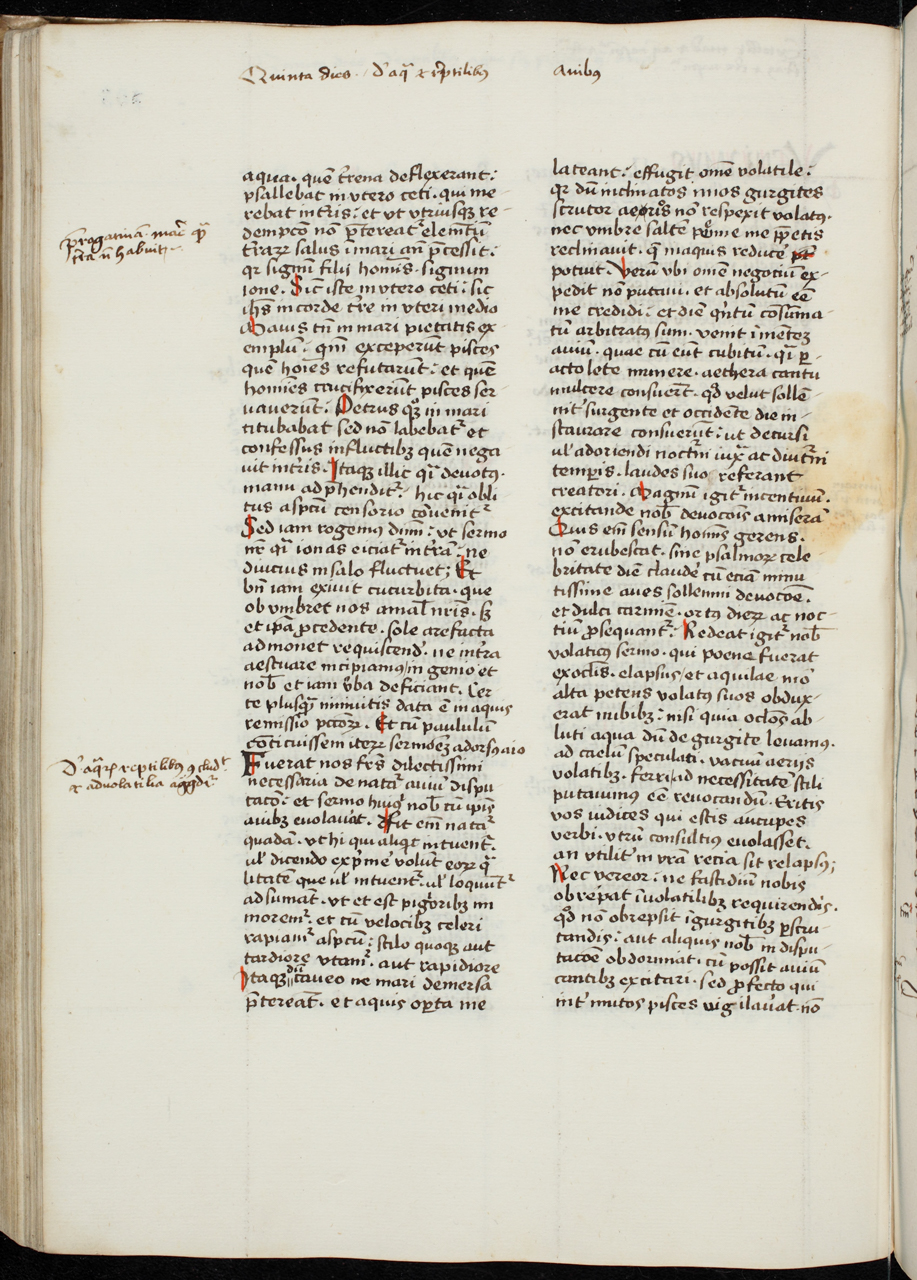 Quinta dies. D' aqͣ et reptilibꝰ
Auibꝰ
p̄rogatiuā mar̄ qͣ
t̄ra nō habuit
aqua. quē t̄rena deflexerant:
psallebat in vtero ceti. qui me-
rebat in t̄ris: et vt vtriusqꝫ re-
dempcō nō p̄tereat elemētū
t̄rarꝝ salus ī mari an̄ p̄cessit:
qꝛ signū filij homīs. signum
ione. Sic iste in vtero ceti: sic
ihs̄ in corde t̄re in vteri medio
Maius tn̄ in mari pietatis ex-
emplū. qm̄ exceperūt pisces
quē hoīes refutarūt: et quē
homīes crucifixerūt pisces ser-
uauerūt: Petrus qꝫ in mari
titubabat sed nō labebatᷣ et
confessus in fluctibꝫ quē nega
uit in t̄ris. Itaqꝫ illic qͣ deuotꝰ.
manu adp̄henditᷣ. hic qͣ obli
tus aspc̄tu censorio cōuenitᷣ
Sed iam rogemꝰ dn̄m: vt sermo
nr̄ qͣ ionas eiciatᷣ in t̄ra: ne
diucius in salo fluctuet; Et
bn̄ iam exiuit cucurbita. que
obumbret nos a mal̄ nr̄is. sꝫ
et ip̄a p̄cedente. sole arefacta
admonet requiscend'. ne in t̄ra
aestuare incipiamꝰ/ ingenio et
nob̄ et iam v̄ba deficiant. Cer
te plusqͣ niniuitis data ē in aquis
remissio pct̄orꝝ. Et cū paululū
cōticuissem iterꝝ sermoēꝫ adorsꝰ aio
D' aqͣ et reptilibꝰ ꝯcludᷣ
et ad volatilia aggdiᷣ
Fuerat nos fr̄s dilectissimi
necessaria de natᷣa auiū dispu
tacō: et sermo huiꝰ nob̄ cū ipīs
auibꝫ euolau'at. Fit em̄ natᷣa
quadā. vt hi qui aliqͥt intuentᷣ.
ul' dicendo exp̄me' volūt eorꝝ qͣ
litatē que ul' intuentᷣ. ul' loquūtᷣ
adsumāt. vt et est pig'oribꝫ im
moremᷣ. et cū velocibꝫ celeri
rapiamᷣ aspc̄tu: stilo quoqꝫ aut
tardiore vtamᷣ. aut rapidiore
Itaqꝫ dū caueo ne mari demersa
p̄tereāt. et aquis op̄ta me
lateant: effugit om̄e volatile:
qꝛ dū inclinatos imos gurgites
scrutor aeōris nō respexit volatꝰ.
nec vmbre saltē pēne me īpetis
reclinauit. q̄ in aquis reducē'
potuit. Verū vbi om̄e negotiū ex-
pedit nō putaui. et absolutū eē
me credidi: et diē qn̄tū cōsūma-
tū arbitratꝰ sum. venit ī mētēꝫ
auiū. quae cū eūt cubitū. qͣ p̄-
acto lete munere. aethera cantu
mulcere consuer̄t. qd̄ velut sollē-
nit' surgente et occidēte die in-
staurare consuerūt: ut decursi
ul' adoriendi noct̄ni iux̄ ac diut̄ni
temp̄is. laudes suo referant
creatori. Magnū igitᷣ incentiuū.
excitande nob̄ deuocōis amiserā
Quis em̄ sensū homīs gerens.
nō erubescat. sine psalmorꝝ cele
britate diē claude' cū eciā minu
tissime aues sollenni deuocōe.
et dulci carmīe. ortꝰ dierꝝ ac noc-
tiū p̄sequantᷣ. Redeat igitᷣ nob̄
volaticꝰ sermo. qui poene fuerat
ex oclīs. elapsus/ et aquilae mō
alta petens volatꝰ suos obdux-
erat nubibꝫ: nisi quia oclōs ab-
luti aqua dū de gurgite leuamꝰ.
ad caelū speculati. vacuū aerys
volatibꝫ. ferri ad necessitatē stili
putauimꝰ eē reuocandū. Eritis
vos iudices qui estis aucupes
verbi. vtrū consultiꝰ euolasset.
an vtilit' in vr̄a recia sit relapsꝰ;
Nec vereor: ne fastidiū nobis
obrepat ī volatilibꝫ requirendis.
qd̄ nō obrepsit ī gurgitibꝫ p̄scru-
tandis: aut aliquis nob̄ in dispu-
tacōe obdormiat. cū possit auiū
cantibꝫ excitari. Sed p̄fecto qui
int' mutos pisces vigilau'at. nō